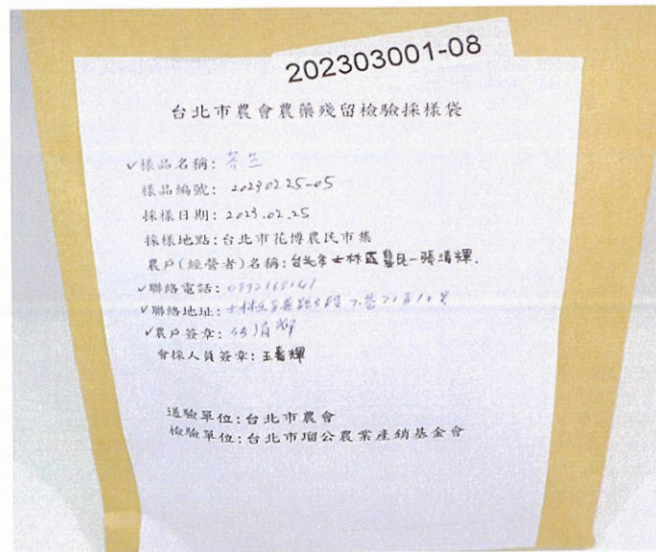 202303001-08
台北市農會農藥殘留檢驗採樣袋
✓樣品名稱:
樣品編號: 20230225-05
採樣日期: 2023.02.25
採樣地點:台北市花博農民市集
農戶(經營者)名稱:台北市士林區農民-張清輝.
✓聯絡電話:
✓聯絡地址:士林區
✓農戶簽章:
會採人員簽章:王
送驗單位:台北市農會
檢驗單位:台北市瑠公農業產銷基金會